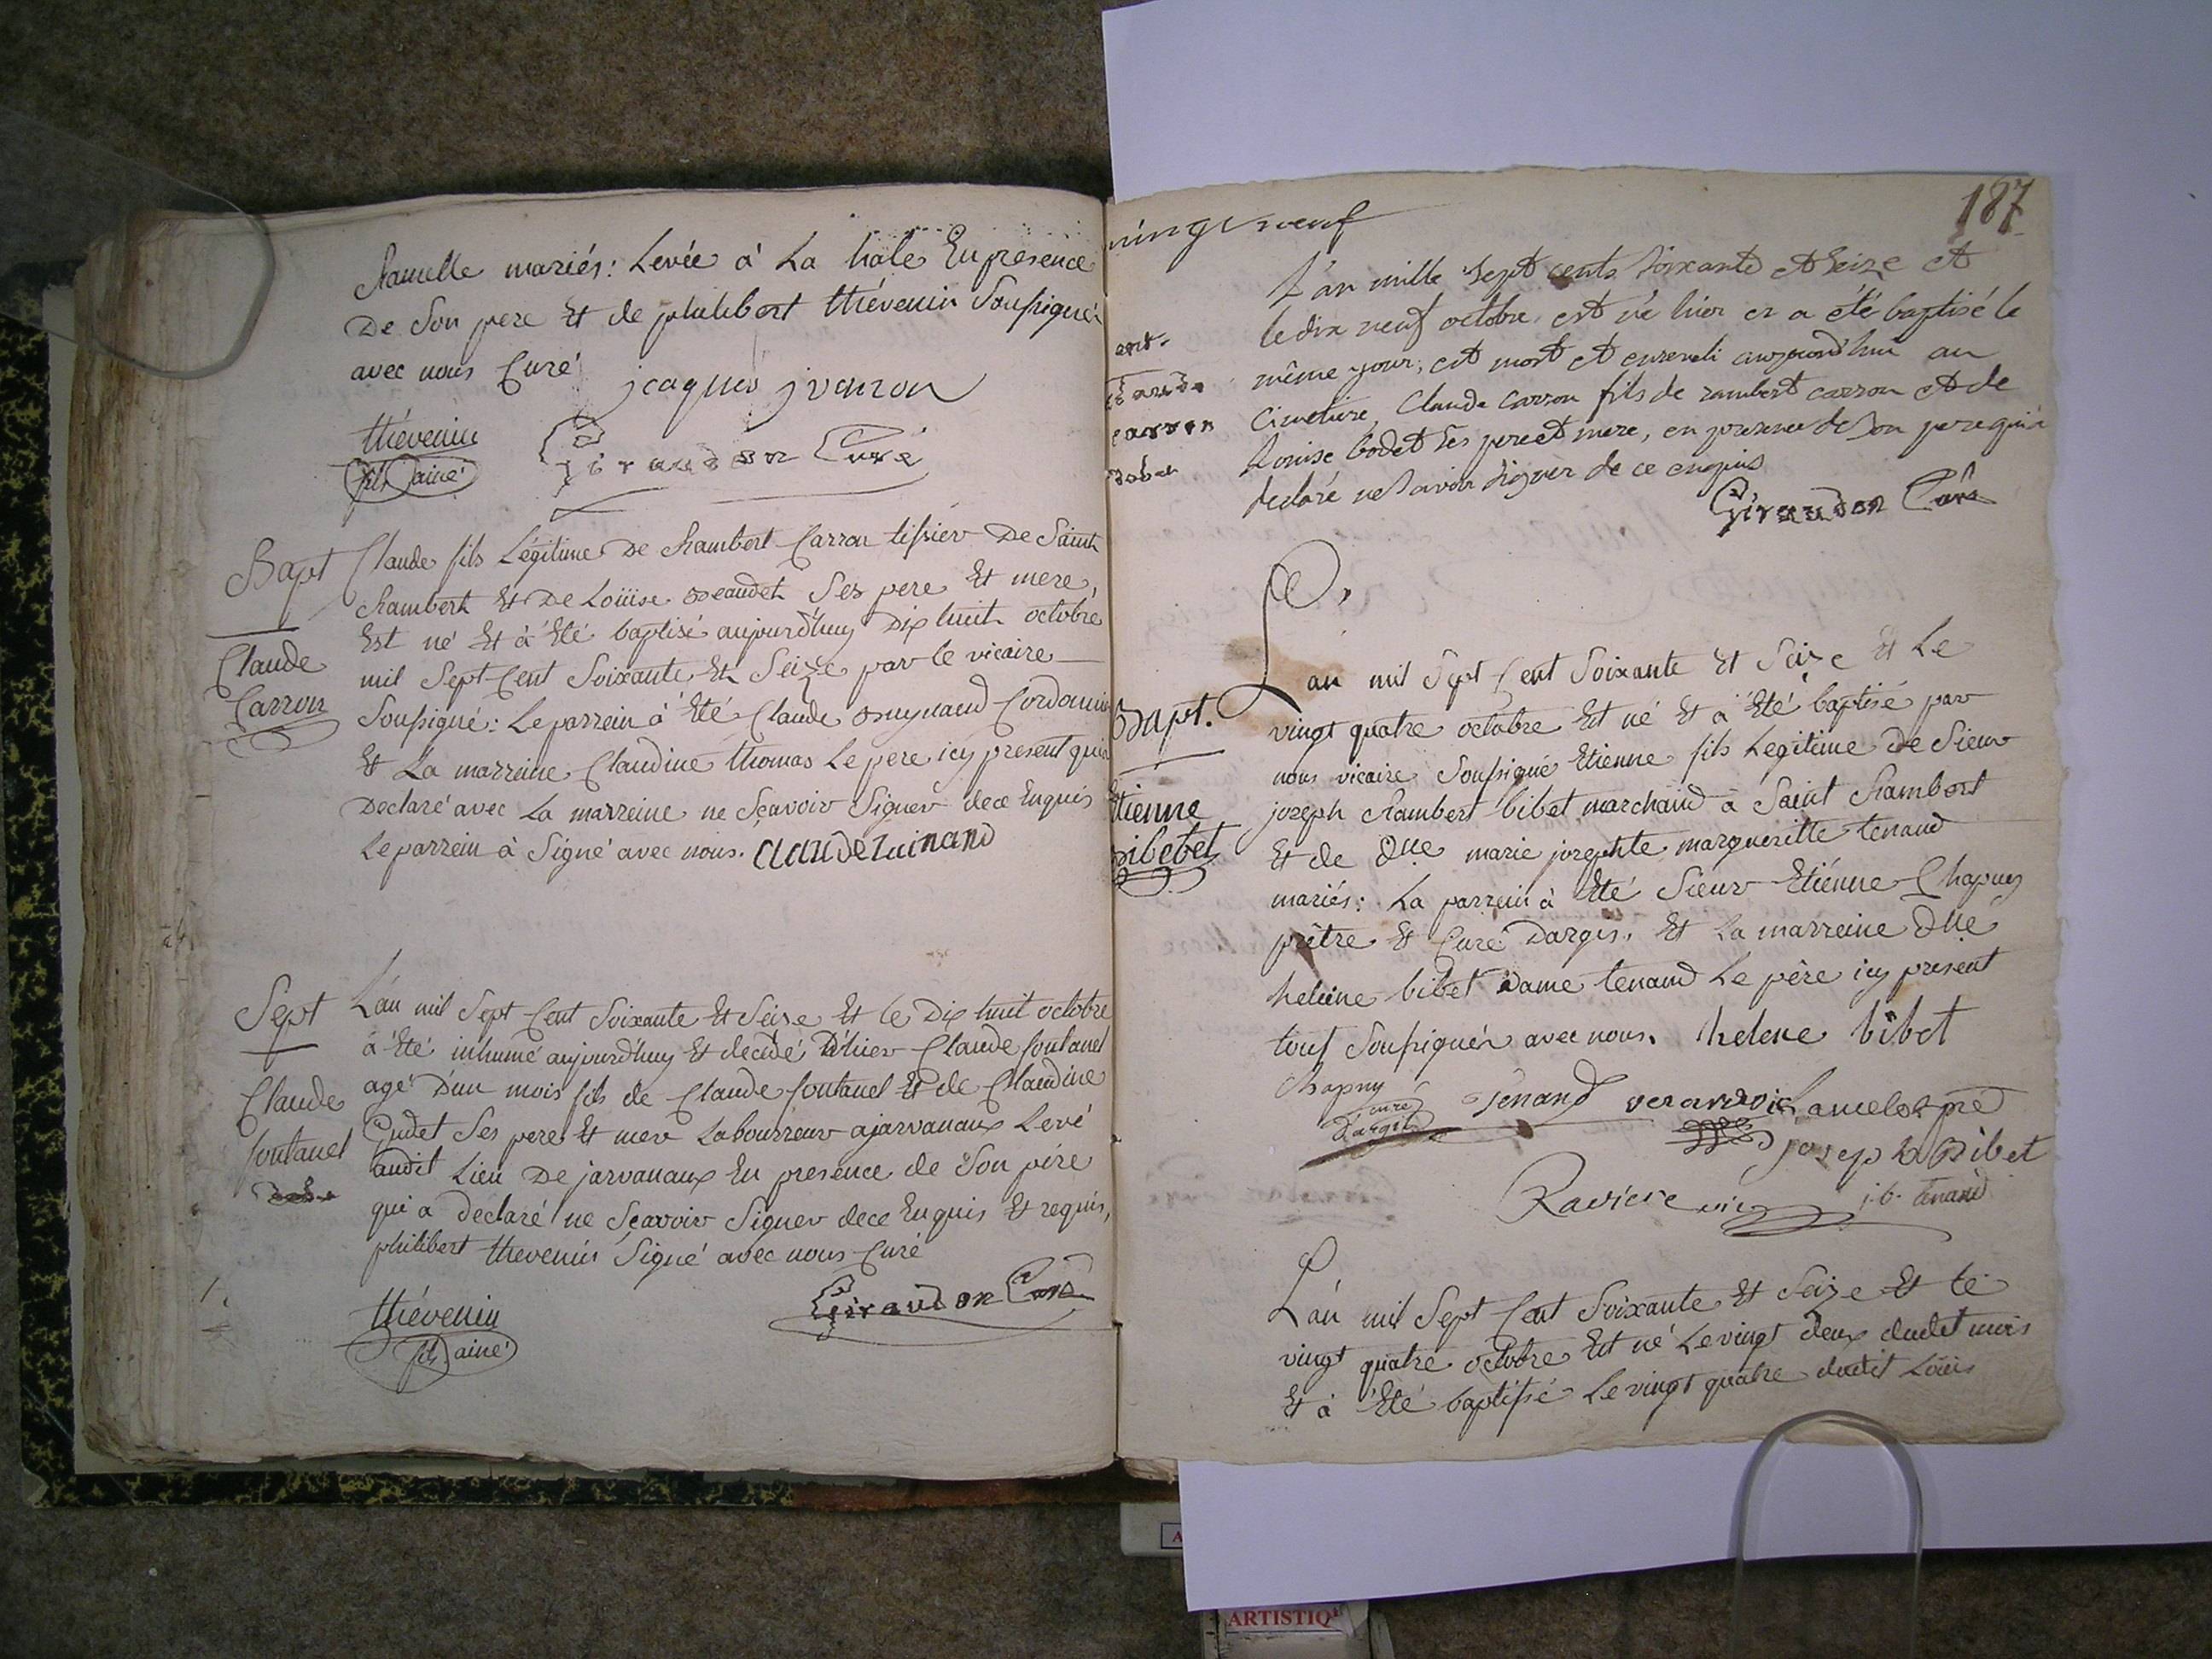 Ramelle mariés: Levée à La hale En presence
De Son pere Et de philibert thévenin Soussignés
avec nous Curé
jcaques jvanron
thévenin
fils ainé
Giraudon Curé
Bapt
Claude
Carron
Claude fils Légitime De Rambert Carron tissier De Saint
Rambert Et De Loüise Beaudet Ses pere Et mere,
Est né Et à Eté baptisé aujourdhuy Dix huit octobre
mil Sept Cent Soixante Et Seize par le vicaire
Soussigné: Le parrein à Eté Claude Cordonnier
Et La marreine Claudine thomas Le pere icy present qui a
Declaré avec La marreine ne Sçavoir Signer dece Enquis
Le parrein à Signé avec nous. CLAUDe Luinand
Sept
Claude
fontanel
L'an mil Sept Cent Soixante Et Seize Et le Dix huit octobre
à Eté inhumé aujourdhuy Et decedé D'hier Claude fontanel
agé D'un mois fils de Claude fontanel Et de Claudine
Gudet Ses pere Et mere Labourreur a jarvanaux Levé
audit Lieu De jarvanaux En presence de Son père
qui a declaré ne Sçavoir Signer dece Enquis Et requis,
philibert thevenin Signé avec nous Curé
thévenin
fils ainé
Giraudon Curé
187
vingt neuf
ent.
Claude
carron
L'an mille Sept cents Soixante et Seize et
le dix neuf octobre, est né hier et a été baptisé le
même jour, est mort et enseveli aujourd'hui au
Cimetiere, Claude Carron fils de rambert carron et de
Louise bodet Ses pere et mere, en presence de Son pere qui a
declaré ne Savoir Signer de ce enquis
Giraudon Curé
Bapt.
Etienne
bibet
L'an mil Sept Cent Soixante Et Seize Et Le
vingt quatre octobre Est né Et à Eté baptisé par
nous vicaire Soussigné Etienne fils Legitime De Sieur
joseph Rambert bibet marchand à Saint Rambert
Et de Dlle marie josephte margueritte tenand
mariés: La parrein à Eté Sieur Etiénne Chapuy
prêtre Et Curé Dargis. Et La marreine Dlle
helene bibet Dame tenand Le père icy present
tous Soussignés avec nous. helene bibet
Chapuy
curé
d'argis
Tenand
Lancelot pre
joseph Bibet
Raviere vic
j.b. tenand
L'an mil Sept Cent Soixante Et Seize Et le
vingt quatre octobre Est né Le vingt deux dudit mois
Et à Eté baptissé Le vingt quatre dudit Loüis